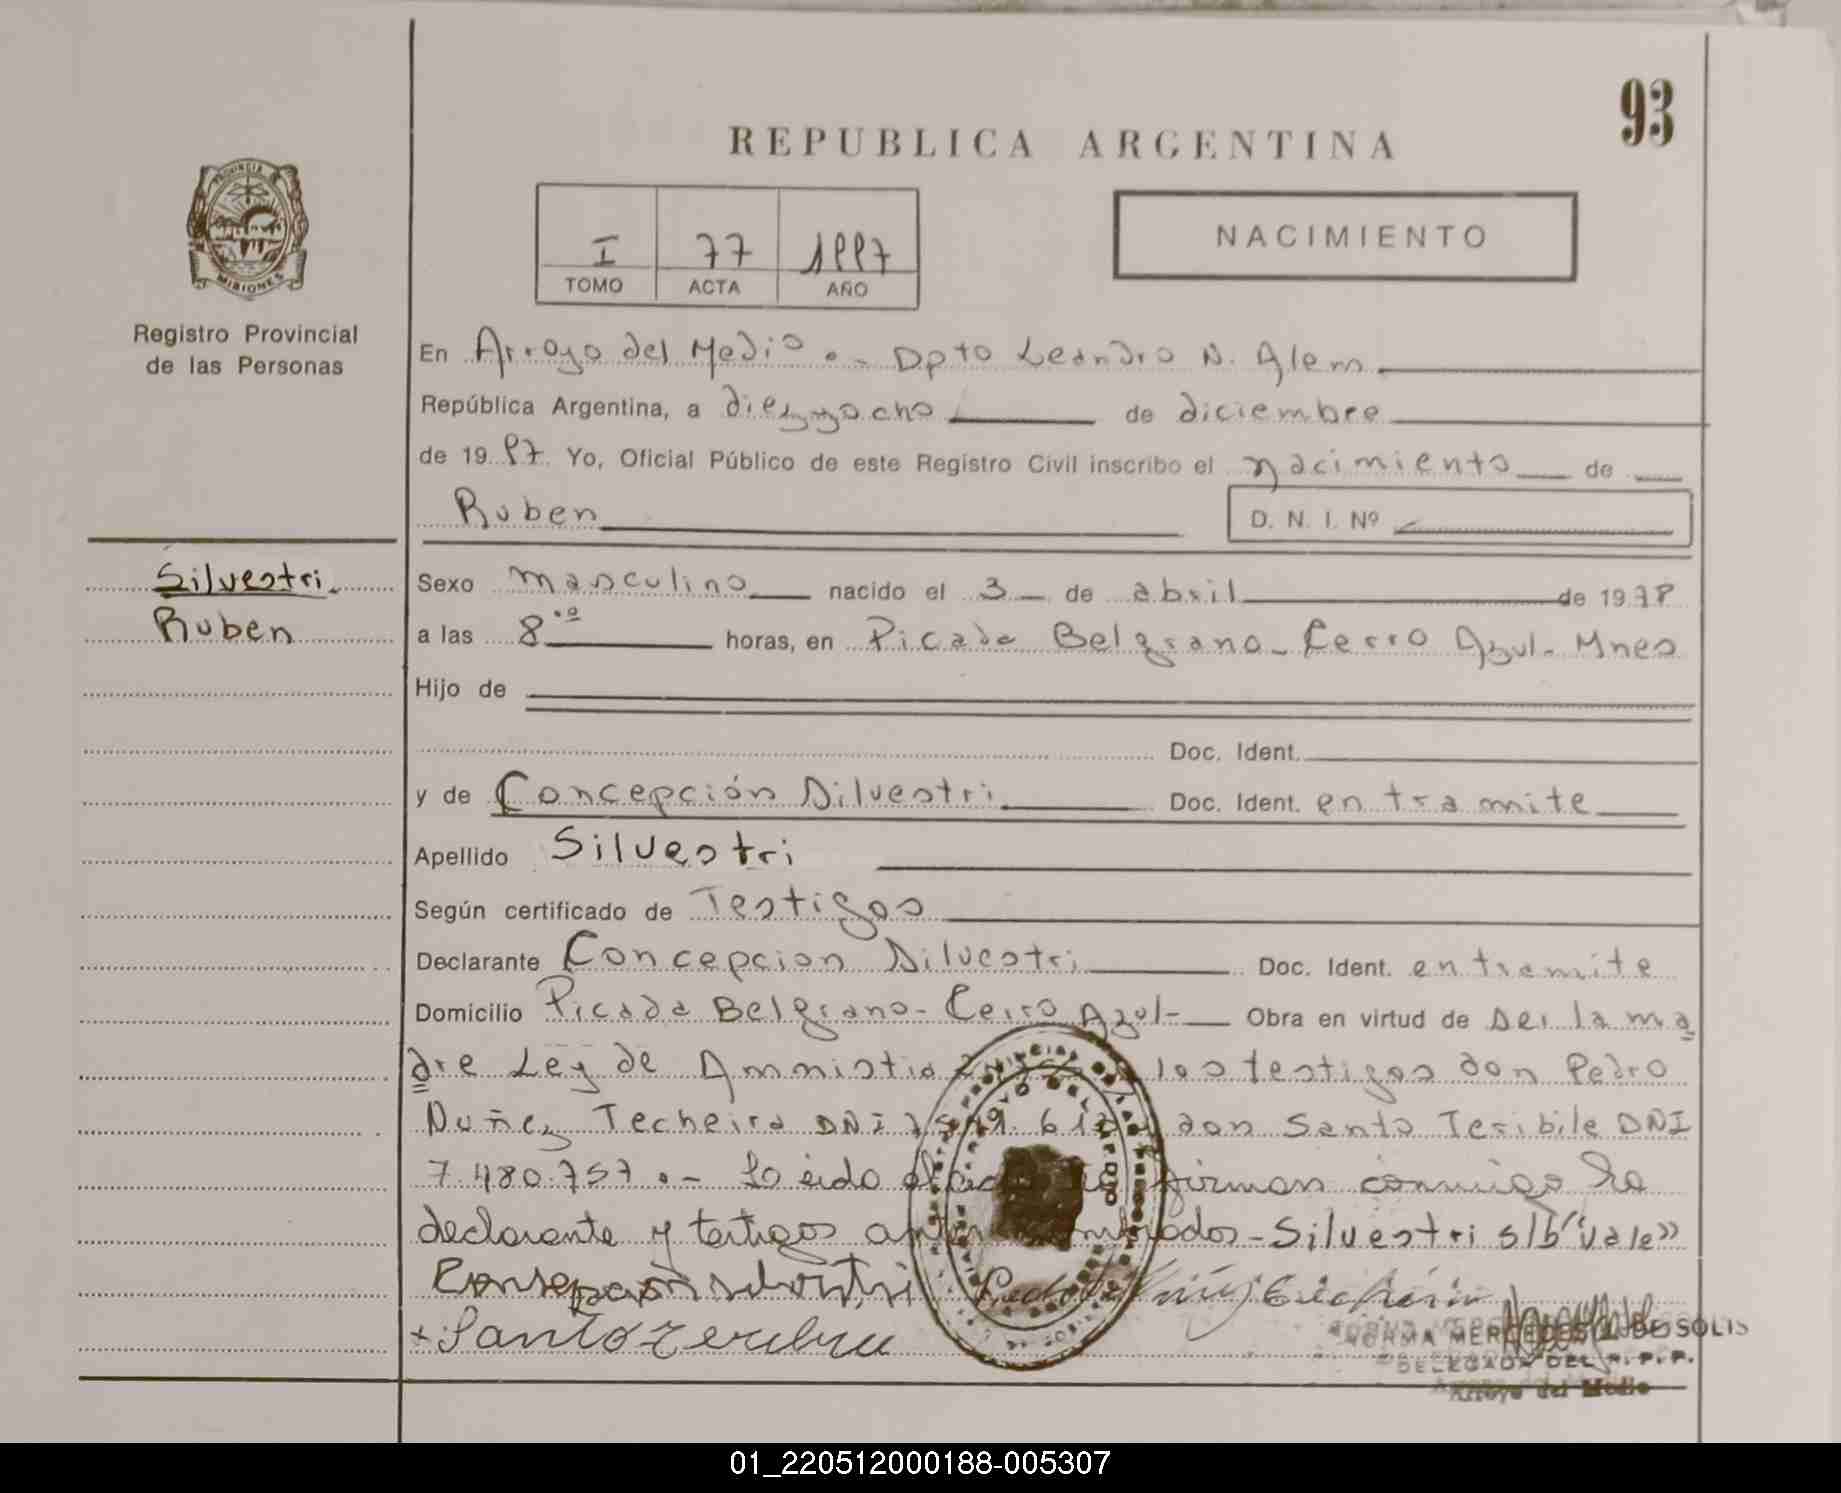 93
REPUBLICA ARGENTINA
PROVINCIA DE
MISIONES
Registro Provincial
de las Personas
I 77 1997
TOMO ACTA AÑO
NACIMIENTO
En Arroyo del Medio.- Dpto Leandro N. Alem
República Argentina, a diezyocho de diciembre
de 1997 Yo, Oficial Público de este Registro Civil inscribo el nacimiento de
Ruben D. N. I. Nº
Silvestri
Ruben
Sexo masculino nacido el 3 de abril de 1978
a las 8.ª horas, en Picada Belgrano - Cerro Azul - Mnes
Hijo de
Doc. Ident.
y de Concepción Silvestri Doc. Ident. en tramite
Apellido Silvestri
Según certificado de Testigos
Declarante Concepcion Silvestri Doc. Ident. en tramite
Domicilio Picada Belgrano - Cerro Azul - Obra en virtud de ser la ma
dre Ley de Amnistia los testigos don Pedro
Nuñez Techeira DNI don Santo Teribile DNI
7.480.757.- Leido firman conmigo la
declarante y testigos - Silvestri s/b "vale"
Santo
NORMA MERCEDES DE SOLIS
DELEGADA DEL R.P.P.
Arroyo del Medio
01_220512000188-005307